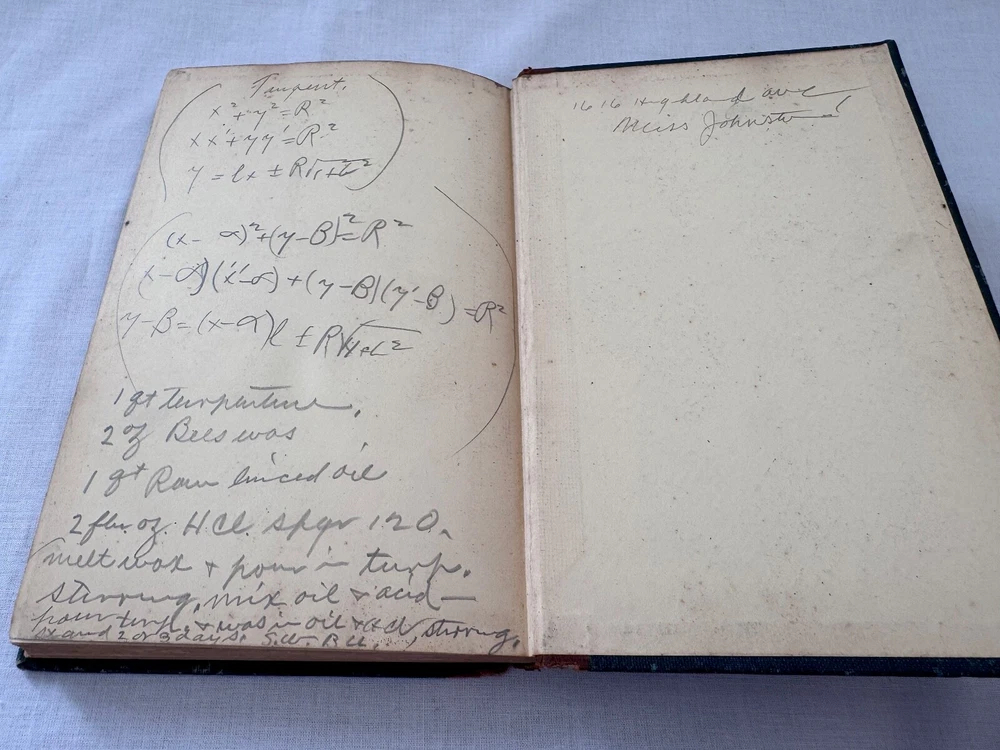 x² + y² = R²
x x' + y y' = R²
y = lx ± R√1+l²
(x - α)² + (y - β)² = R²
(x - α)(x' - α) + (y - β)(y' - β) = R²
y - β = (x - α)l ± R√1+l²
1 qt turpentine.
2 oz Bees wax
1 qt Raw linced oil
2 flu. oz. HCl. spgr 120.
melt wax & pour in turp.
stirring, mix oil & acid —
pour turp. & wax in oil & HCl, stirring,
stand 2 or 3 days.
1616 Highland ave
Miss Johnston